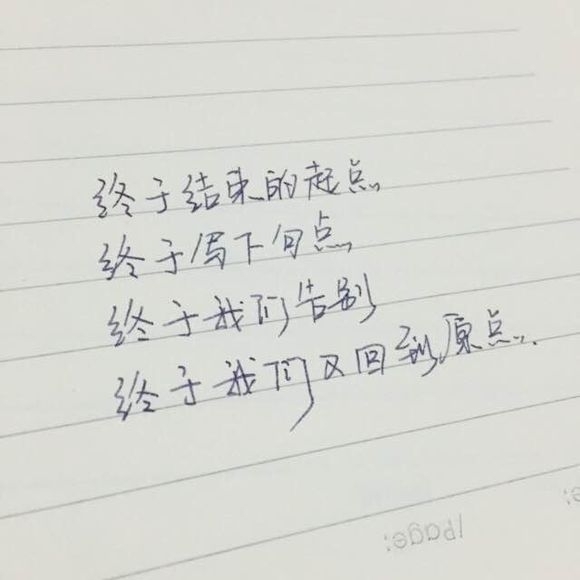 终于结束的起点
终于写下句点
终于我们告别
终于我们又回到原点..
/Page: